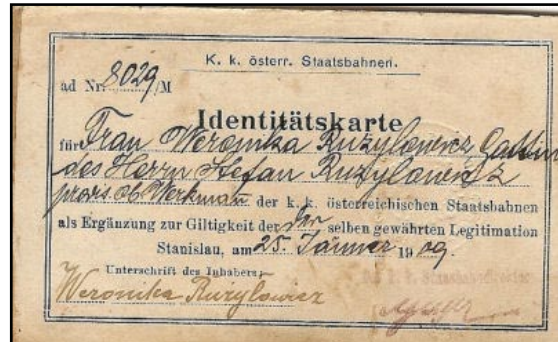 K. k. österr. Staatsbahnen.
ad Nr. 8029/M
Identitätskarte
für Frau Weronika Ruzylowicz, Gattin
des Herrn Stefan Ruzylowicz
provis. Werkman der k. k. österreichischen Staatsbahnen
als Ergänzung zur Giltigkeit der der selben gewährten Legitimation
Stanislau, am 25. Jänner 1909.
Unterschrift des Inhabers:
Weronika Ruzyłowicz